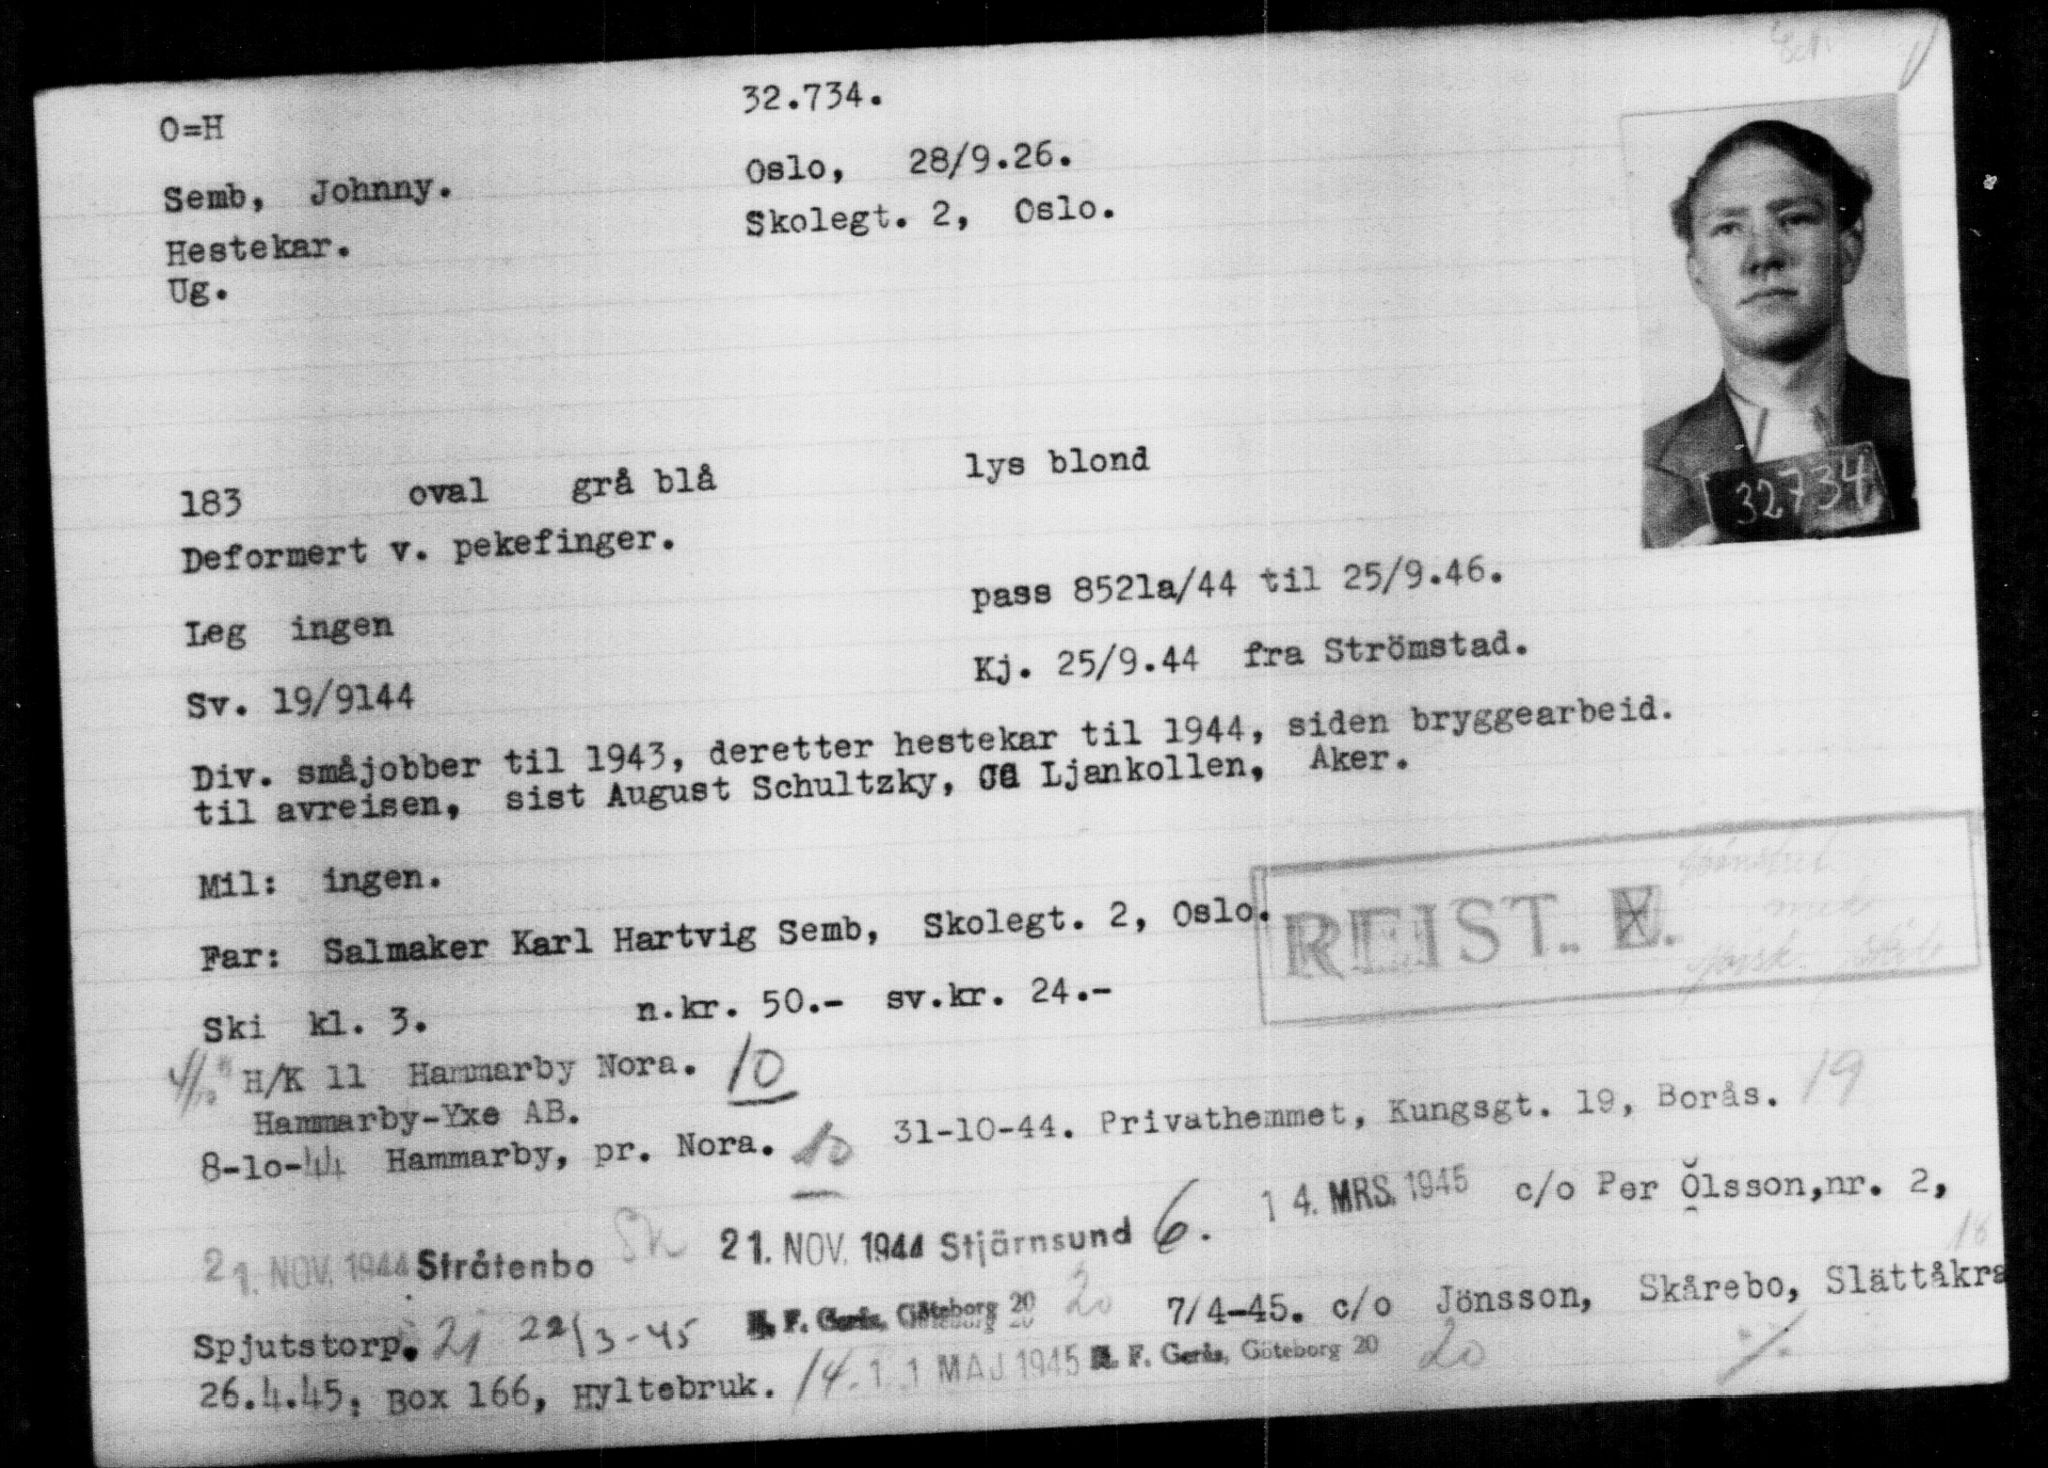 32.734.
O=H
Semb, Johnny. Oslo, 28/9.26.
Hestekar. Skolegt. 2, Oslo.
Ug.
32734
183 oval grå blå lys blond
Deformert v. pekefinger.
pass 8521a/44 til 25/9.46.
Leg ingen
Kj. 25/9.44 fra Strömstad.
Sv. 19/9144
Div. småjobber til 1943, deretter hestekar til 1944, siden bryggearbeid.
til avreisen, sist August Schultzky, Ljankollen, Aker.
Mil: ingen.
REIST.
Far: Salmaker Karl Hartvig Semb, Skolegt. 2, Oslo.
Ski kl. 3. n.kr. 50.- sv.kr. 24.-
4/10 H/K 11 Hammarby Nora. 10
Hammarby-Yxe AB.
8-10-44 Hammarby, pr. Nora. 10 31-10-44. Privathemmet, Kungsgt. 19, Borås. 19
21. NOV. 1944 Stråtenbo 21. NOV. 1944 Stjärnsund 6. 14. MRS. 1945 c/o Per Olsson, nr. 2,
Spjutstorp. 21 22/3-45 F. Gerås, Göteborg 20 20 7/4-45. c/o Jönsson, Skårebo, Slättåkra 18
26.4.45: Box 166, Hyltebruk. 14. 11 MAJ 1945 F. Gerås, Göteborg 20 20